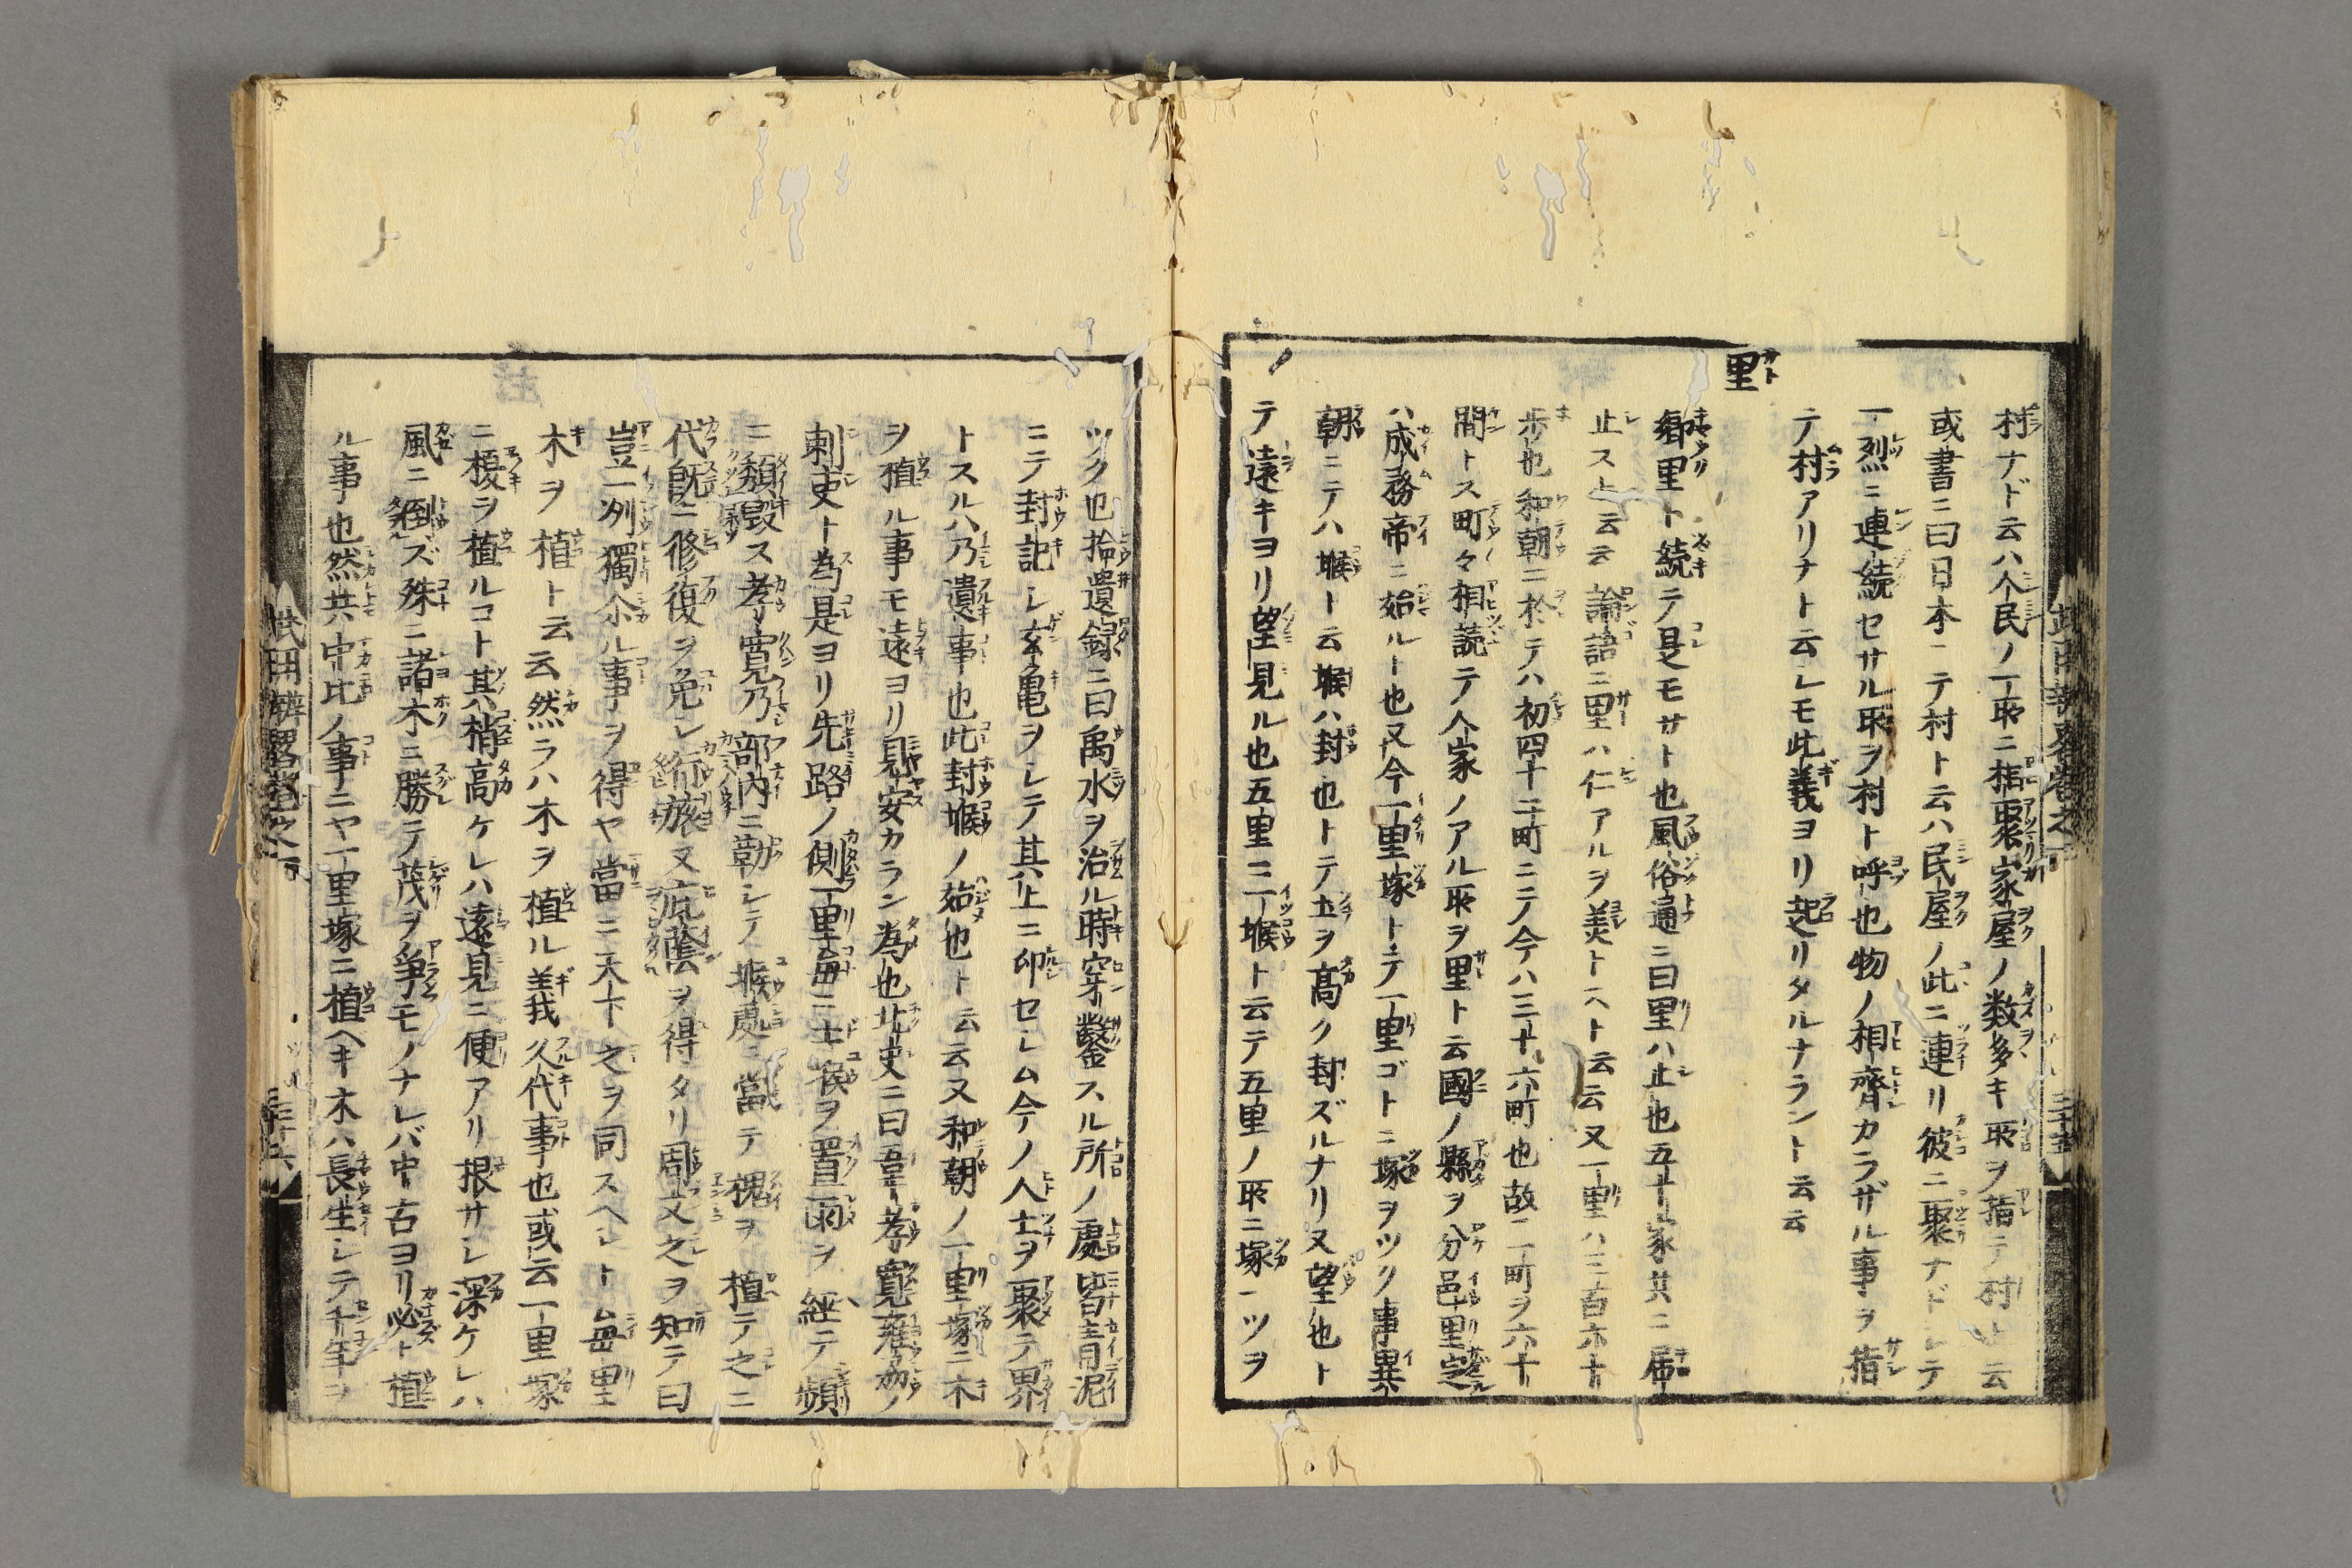 村ナド云ハ人民ノ一所ニ指聚家屋ノ数多キ所ヲ指テ村ト云
或書ニ曰日本ニテ村ト云ハ民屋ノ此ニ連リ彼ニ聚ナドシテ
一烈ニ連続セサル所ヲ村ト呼也物ノ相齊カラザル事ヲ指
テ村アリナト云レモ此義ヨリ起リタルナラント云云
里
郷里ト続テ是モサト也風俗通ニ曰里ハ止也五十家共ニ居
止スト云云論語ニ里ハ仁アルヲ美トスト云云又一里ハ三百六十
歩也和朝ニ於テハ初四十二町ニテ今ハ三十六町也故ニ一町ヲ六十
間トス町々相読テ人家ノアル所ヲ里ト云國ノ縣ヲ分邑里定
ハ成務帝ニ始ルト也又今一里塚トテ一里ゴトニ塚ヲツク事異
朝ニテハ堠ト云堠ハ封也トテ土ヲ高ク封ズルナリ又望也ト
テ遠キヨリ望見ル也五里ニ一堠ト云テ五里ノ所ニ塚一ツヲ
ツク也拾遺録ニ曰禹水ヲ治ル時穿鑿スル所ノ處皆青泥
ニテ封記シ玄亀ヲシテ其上ニ印セシム今ノ人土ヲ聚テ界
トスルハ乃遺事也此封堠ノ始也ト云云又和朝ノ一里塚ニ木
ヲ植ル事モ遠ヨリ見安カラン為也北史ニ曰韋孝寛雍州ノ
刺史ト為是ヨリ先路ノ側一里毎ニ土堠ヲ置雨ヲ經テ頽
ニ頽毀ス孝寛乃部内ニ勒シテ堠處ニ當テ槐ヲ植テ之ニ
代既ニ修復ヲ免レ行旅又庇蔭ヲ得タリ周文之ヲ知テ曰
豈一州獨尒ル事ヲ得ヤ當ニ天下之ヲ同スヘシト毎里
木ヲ植ト云云然ラハ木ヲ植ル義我久代事也或云一里塚
ニ榎ヲ植ルコト其梢高ケレハ遠見ニ便アリ根サシ深ケレハ
風ニ倒ズ殊ニ諸木ニ勝テ茂ヲ争モノナレバ中古ヨリ必ト植
ル事也然共中比ノ事ニヤ一里塚ニ植ヘキ木ハ長生シテ千年ヲ